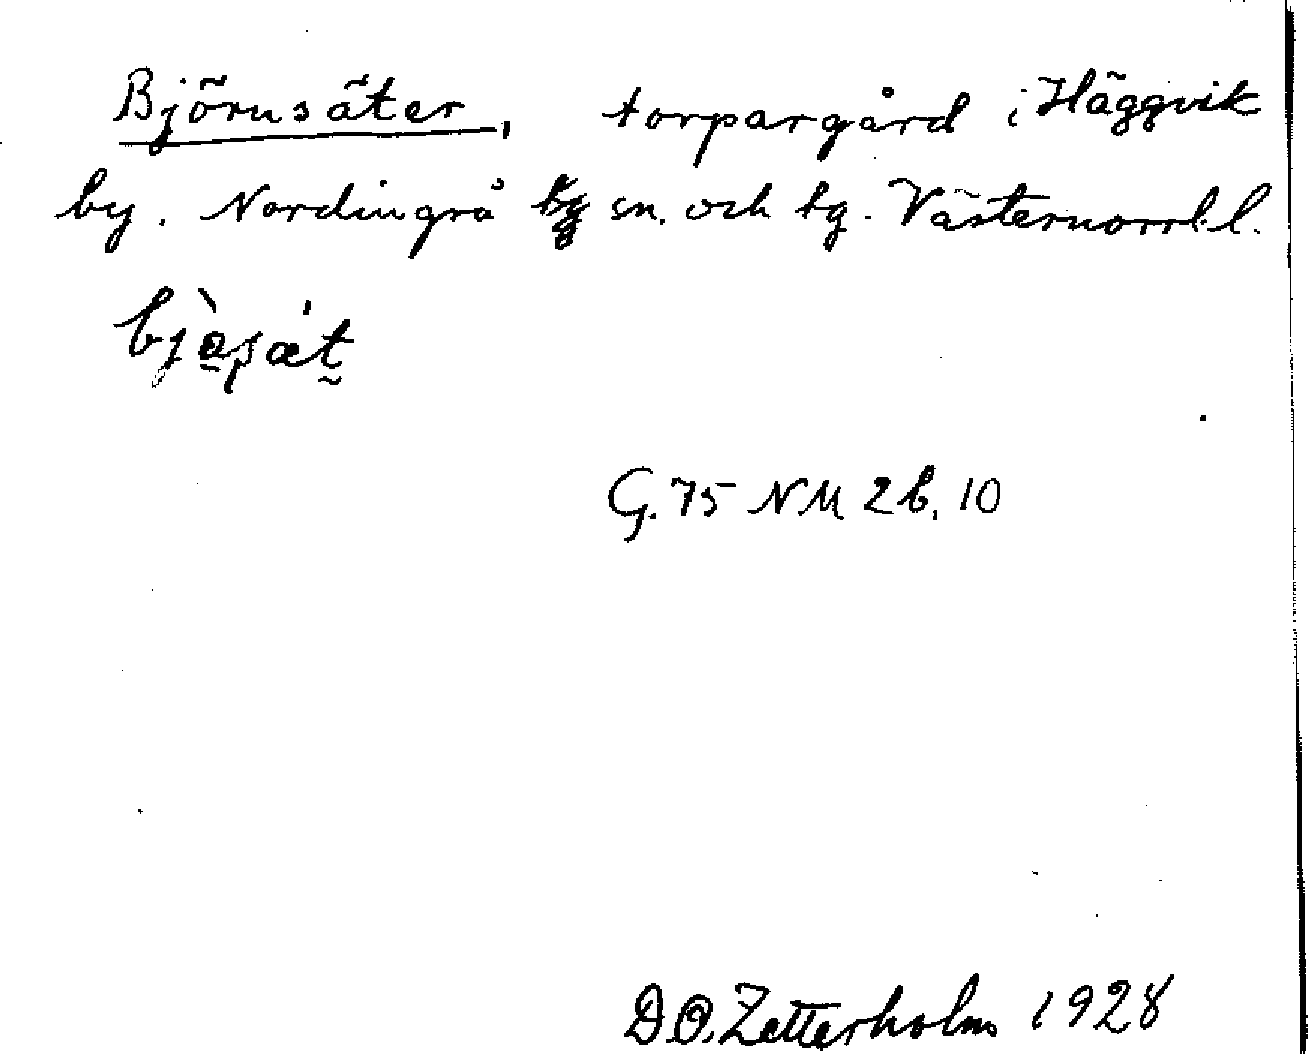 Björnsäter, torpargård i Häggvik
by. Nordingrå sn. och tg. Västernorrl. l.
G. 75 NM 2b, 10
D.O. Zetterholm 1928